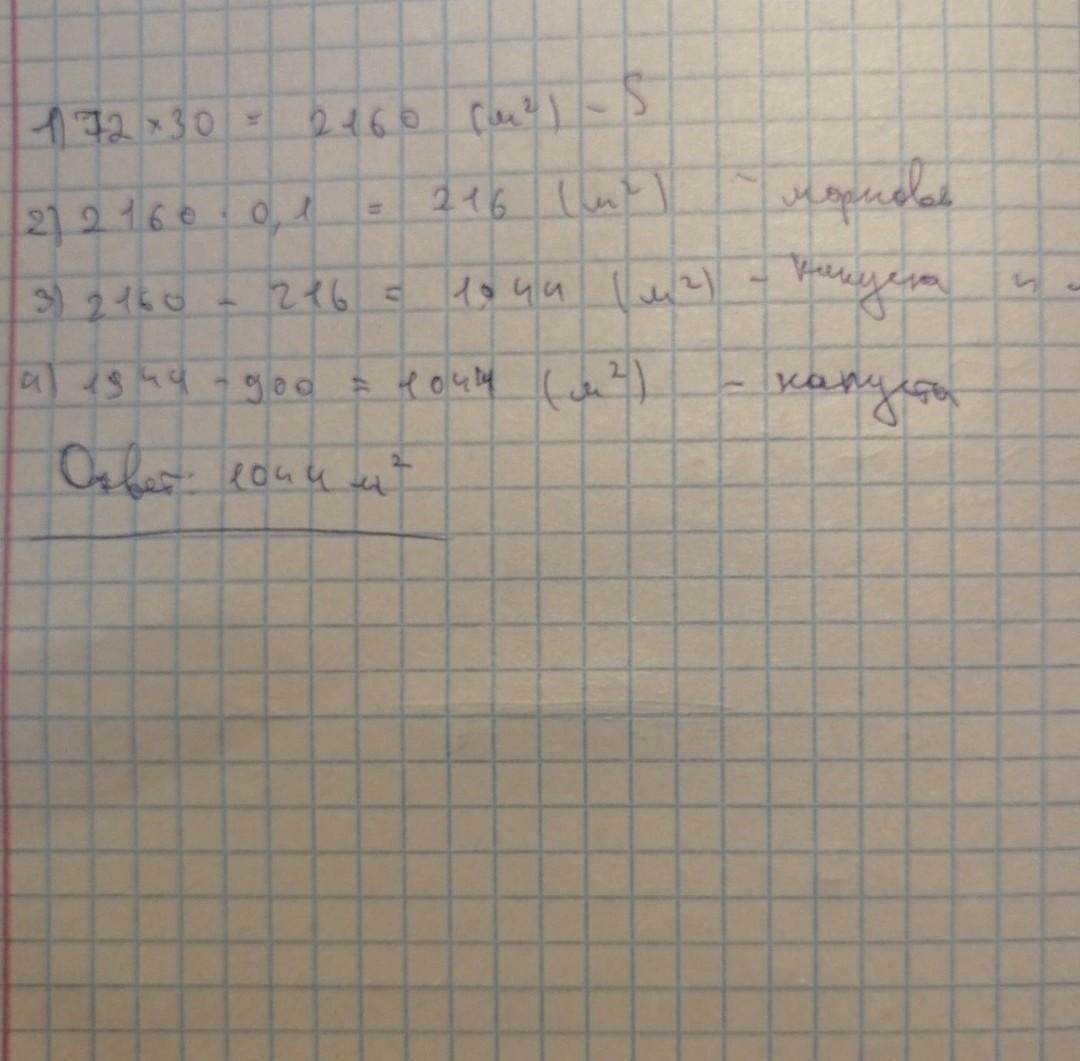 1) 72 × 30 = 2160 (м²) - S
2) 2160 · 0,1 = 216 (м²) - морковь
3) 2160 - 216 = 1944 (м²) - капуста и
4) 1944 - 900 = 1044 (м²) - капуста
Ответ: 1044 м²